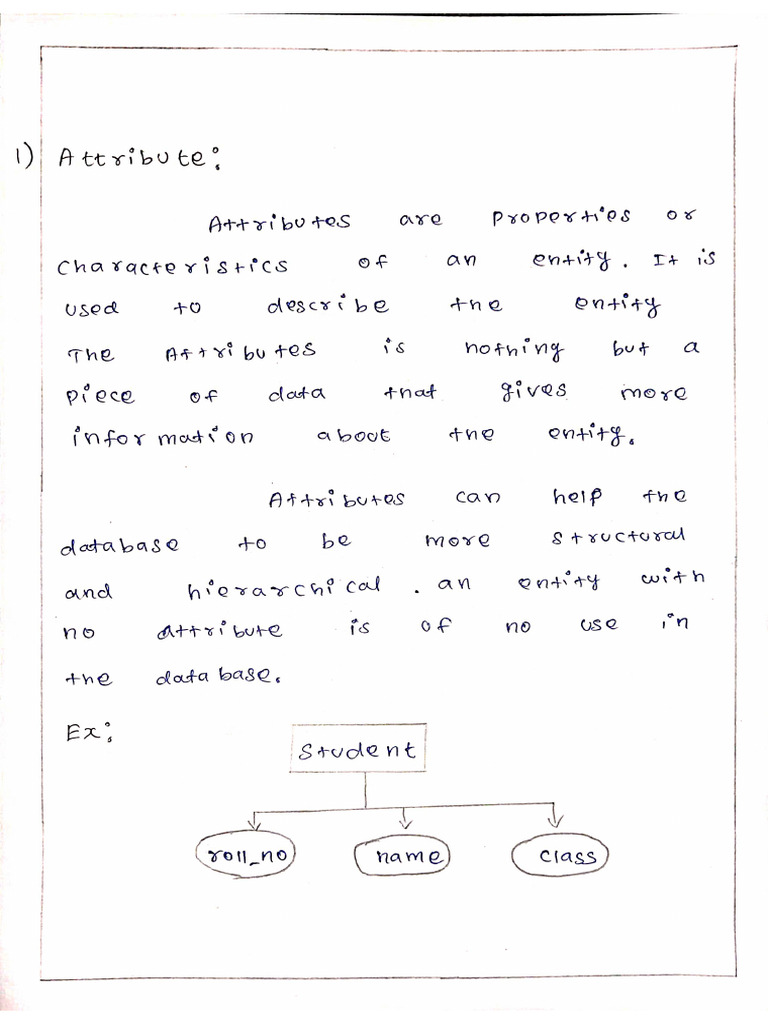 1) Attribute:
Attributes are Properties or
Characteristics of an entity. It is
used to describe the entity
The Attributes is nothing but a
Piece of data that gives more
information about the entity.
Attributes can help the
database to be more structural
and hierarchical. an entity with
no attribute is of no use in
the database.
Ex:
Student
roll_no name class